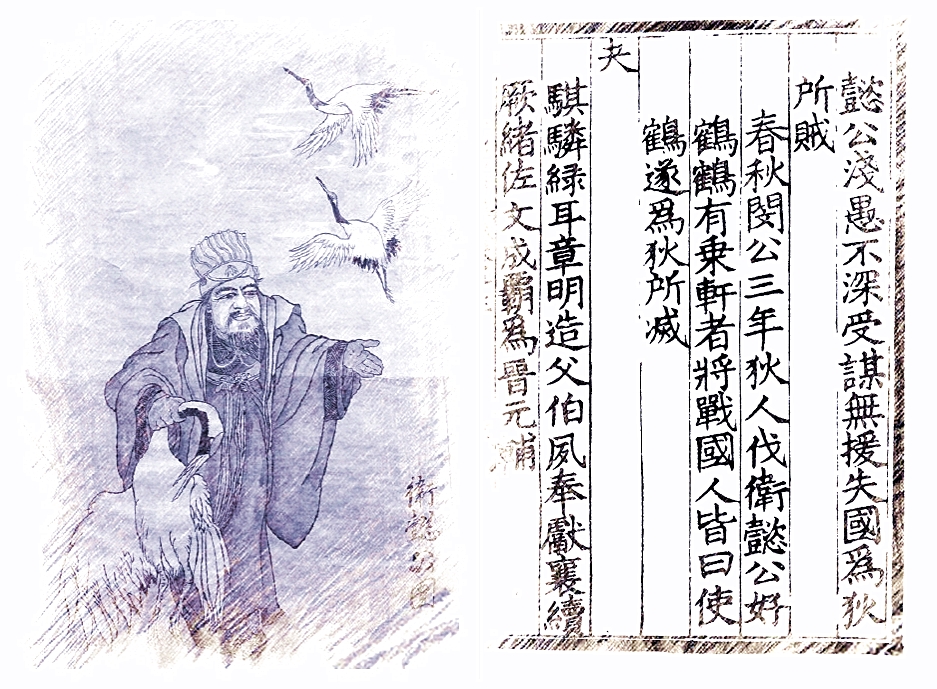 懿公淺愚不深受謀無援失國爲狄
所賊
春秋閔公三年狄人伐衛懿公好
鶴鶴有乗軒者將戰國人皆曰使
鶴遂爲狄所滅
夬
騏驎緑耳章明造父伯夙奉獻襄續
厥緒佐文成霸爲晉元
衛懿公